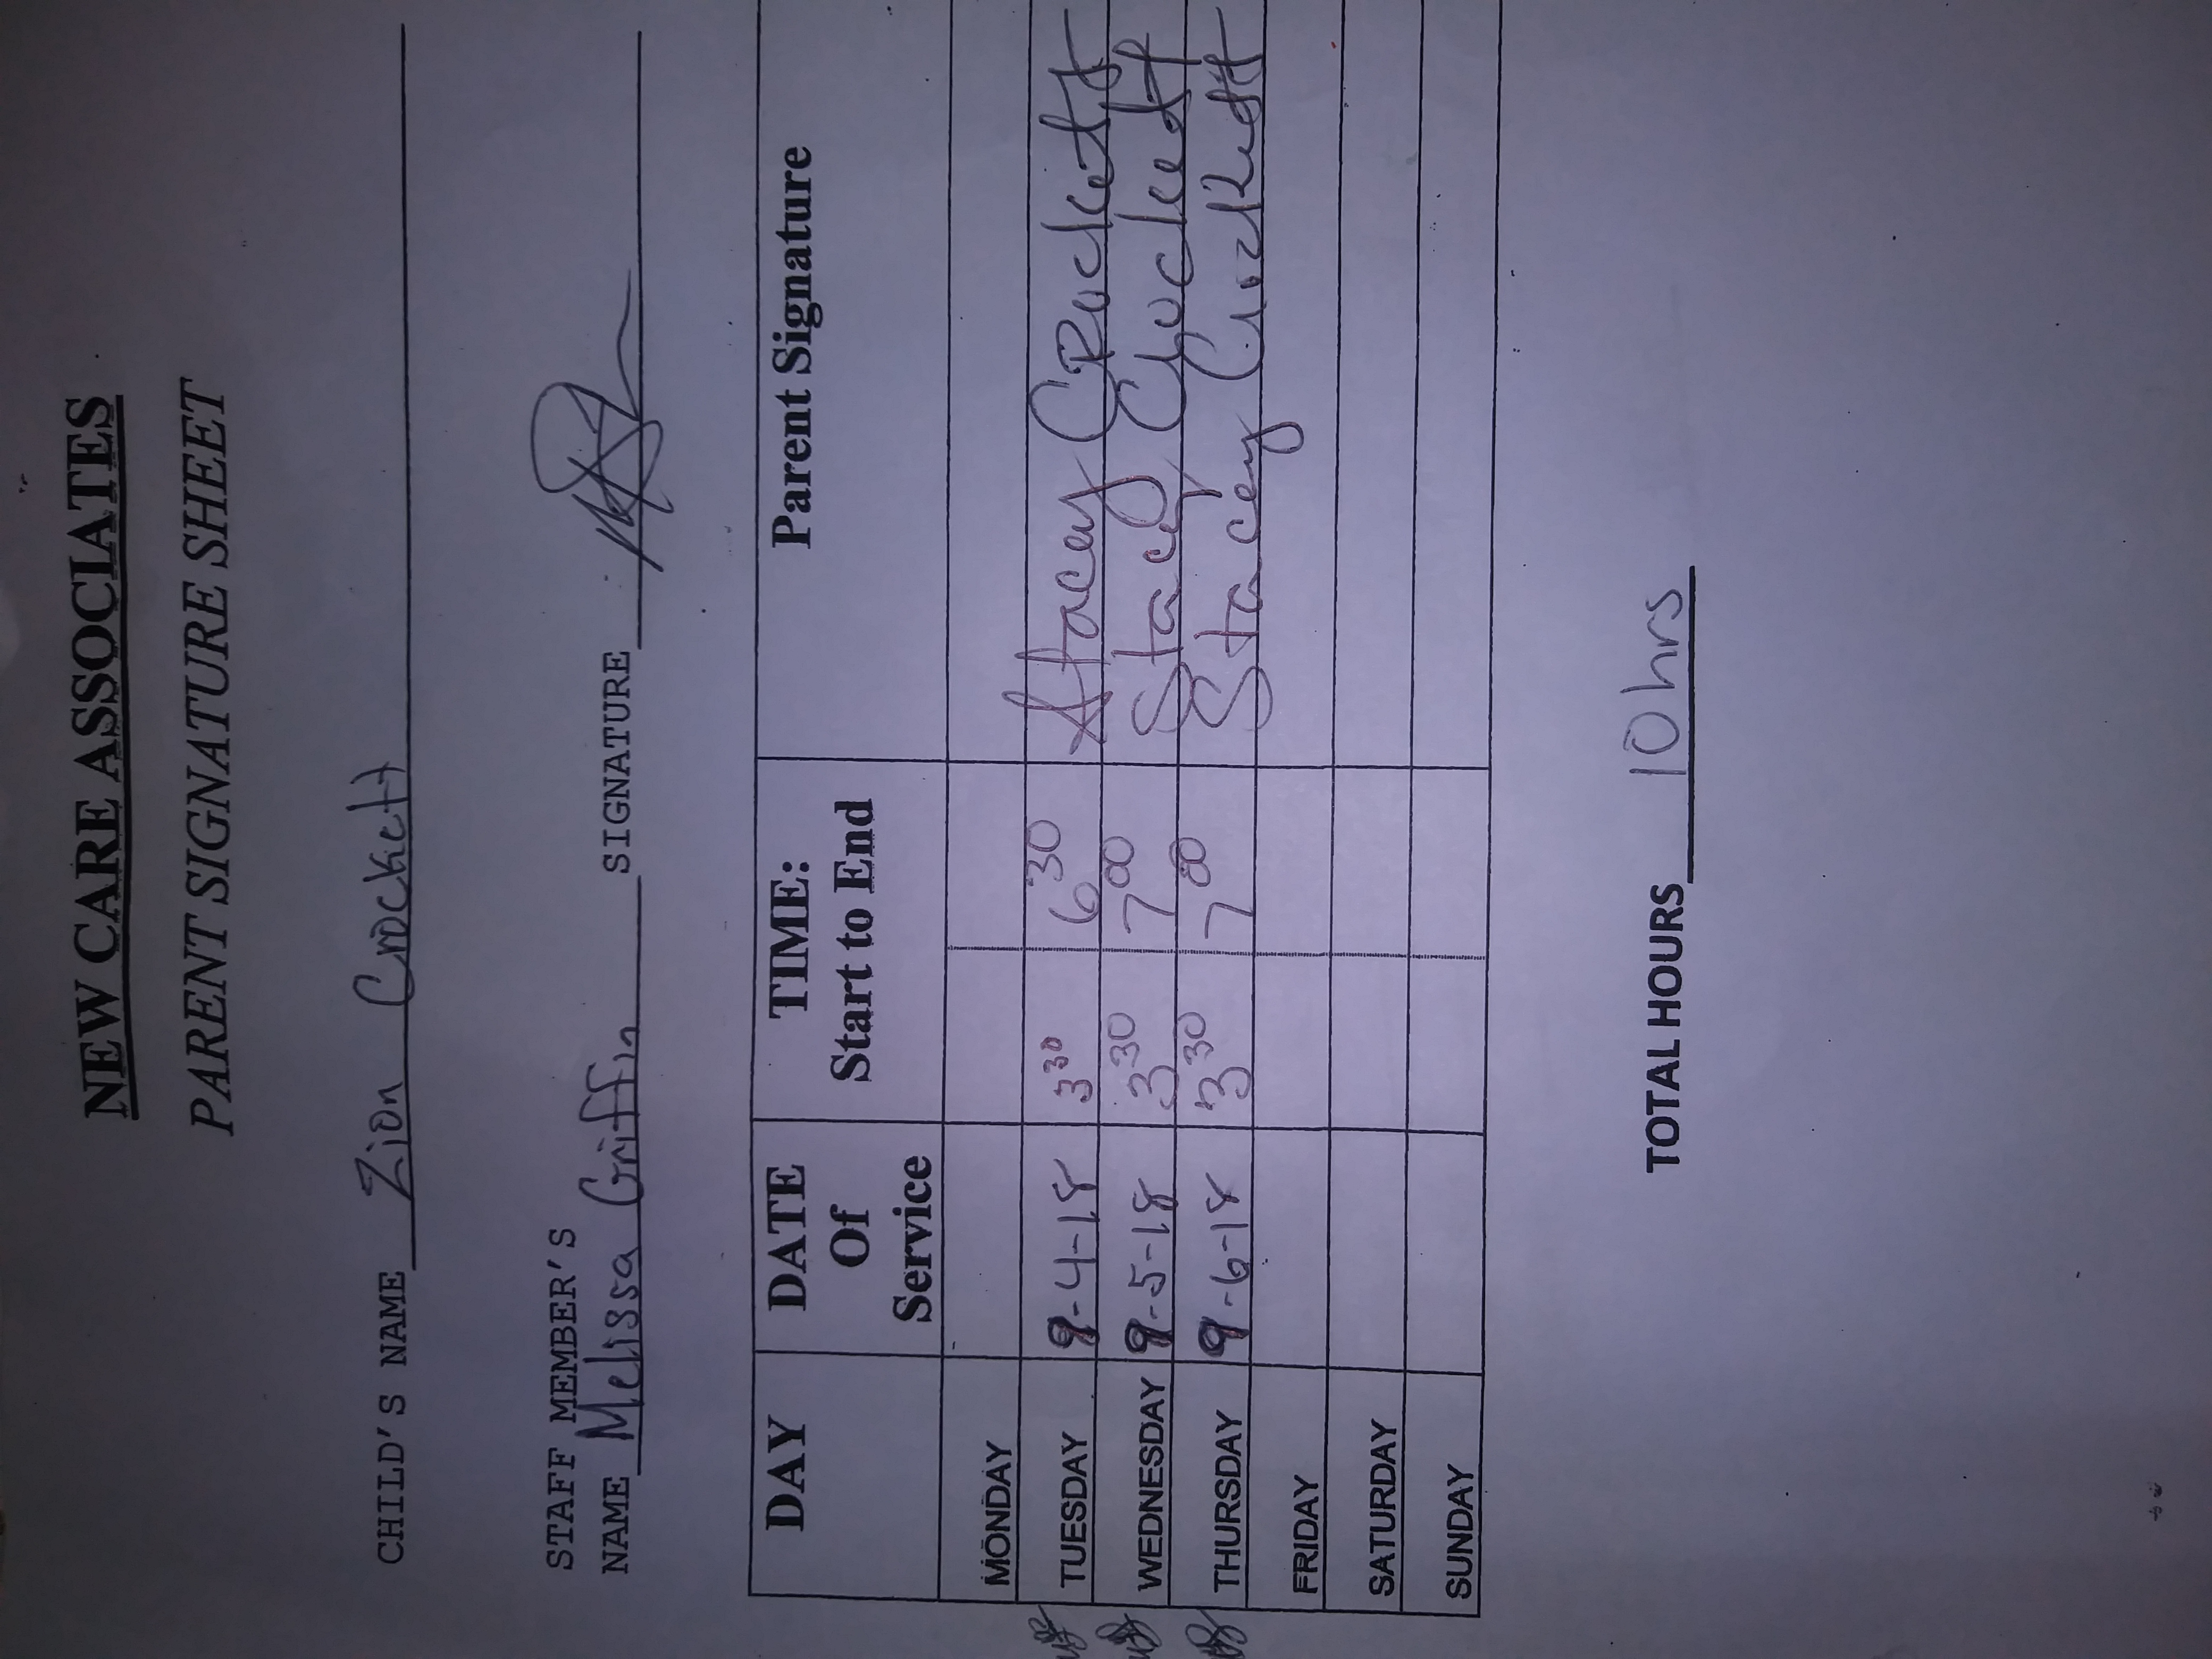 NEW CARE ASSOCIATES
PARENT SIGNATURE SHEET
CHILD'S NAME Zion Crockett
STAFF MEMBER'S
NAME Melissa Griffin SIGNATURE
DAY DATE Of Service TIME: Start to End Parent Signature
MONDAY
TUESDAY 9-4-18 3 30 6 30 Stacey Crockett
WEDNESDAY 9-5-18 3 30 7 00 Stacey Crockett
THURSDAY 9-6-18 3 30 7 00 Stacey Crockett
FRIDAY
SATURDAY
SUNDAY
TOTAL HOURS 10 hrs